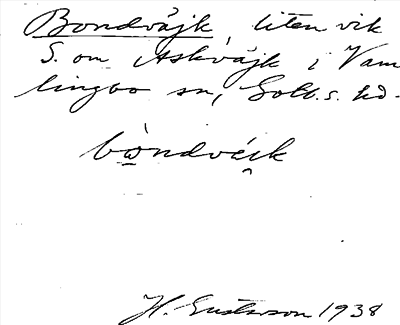 Bondvájk, liten vik
S. om Askvájk i Vam
lingbo sn, Gotl. s. hd.
bòndvéik
H. Gustavson 1938